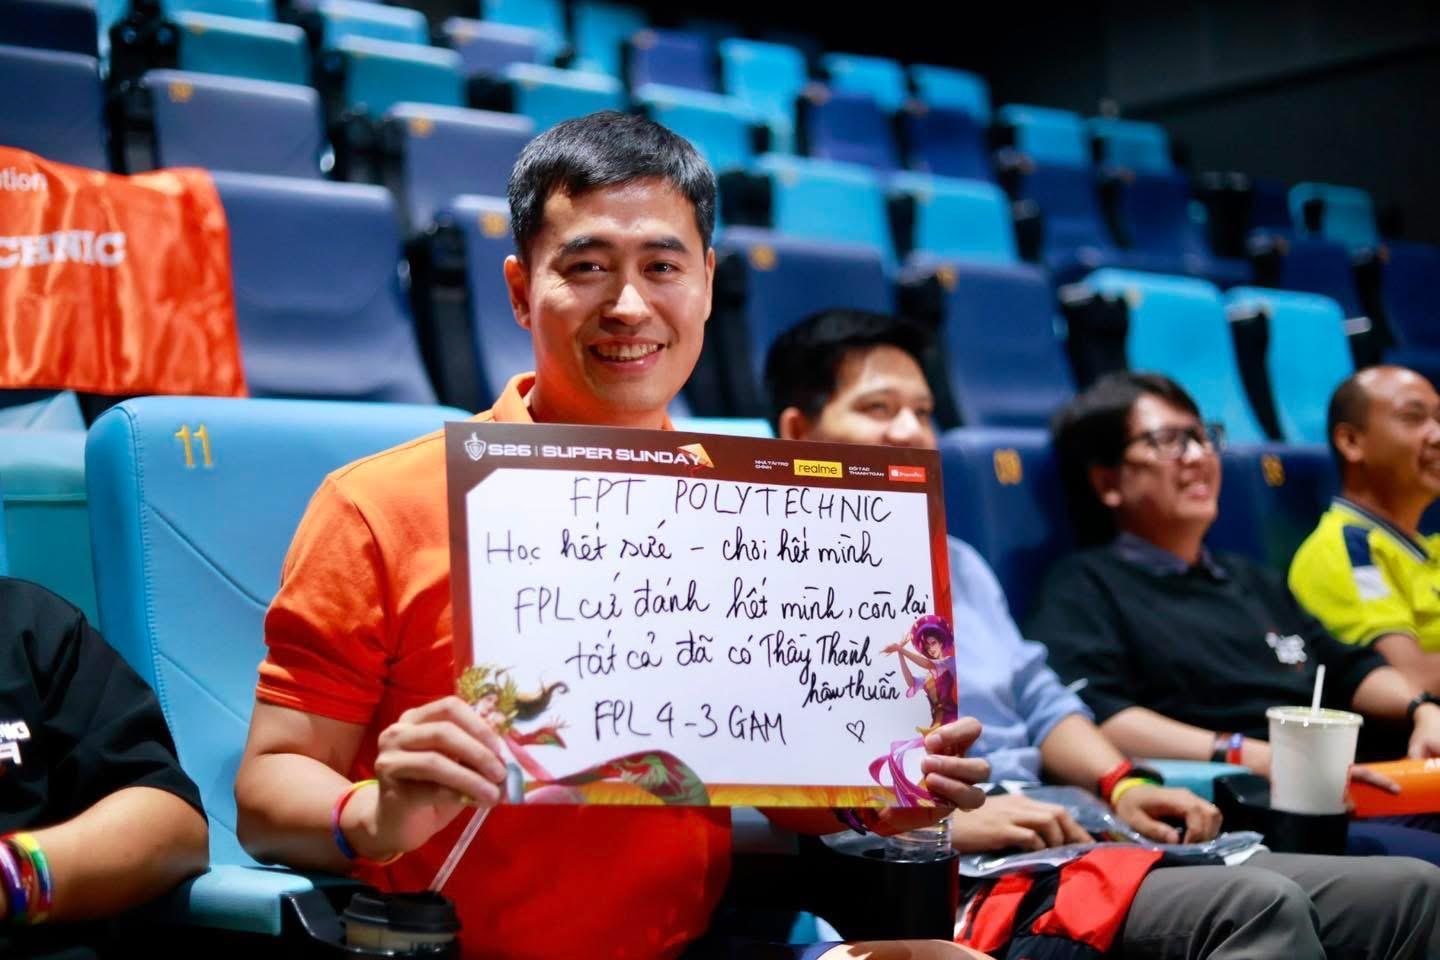 tion
CHNIC
11
09
08
S26 | SUPER SUNDAY
NHÀ TÀI TRỢ
CHÍNH
realme
ĐỐI TÁC
THANH TOÁN
FPT POLYTECHNIC
Học hết sức - chơi hết mình
FPL cứ đánh hết mình, còn lại
tất cả đã có Thầy Thành
hậu thuẫn
FPL 4-3 GAM ♡